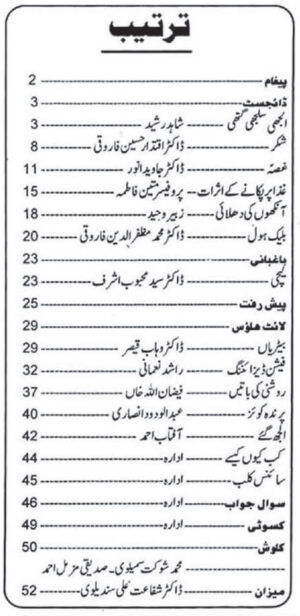 ترتیب
پیغام 2
ڈائجسٹ 3
الجھی سلجھی گتھی شاہد رشید 3
شکر ڈاکٹر اقتدار حسین فاروقی 8
غصہ ڈاکٹر جاوید انور 11
غذا پر پکانے کے اثرات پروفیسر متین فاطمہ 15
آنکھوں کی دھلائی زبیر وحید 18
بلیک ہول ڈاکٹر محمد مظفر الدین فاروقی 20
باغبانی 23
لیچی ڈاکٹر سید محبوب اشرف 23
پیش رفت 25
لائٹ ھاؤس 29
بیٹریاں ڈاکٹر وہاب قیصر 29
فیشن ڈیزائننگ راشد نعمانی 32
روشنی کی باتیں فیضان اللہ خاں 37
پرندہ کوئز عبدالودود انصاری 40
الجھ گئے آفتاب احمد 42
کب کیوں کیسے ادارہ 44
سائنس کلب ادارہ 45
سوال جواب ادارہ 46
کسوٹی ادارہ 49
کاوش 50
محمد شوکت سمیلوی۔ صدیقی مزمل احمد
میزان ڈاکٹر شفاعت علی سندیلوی 52